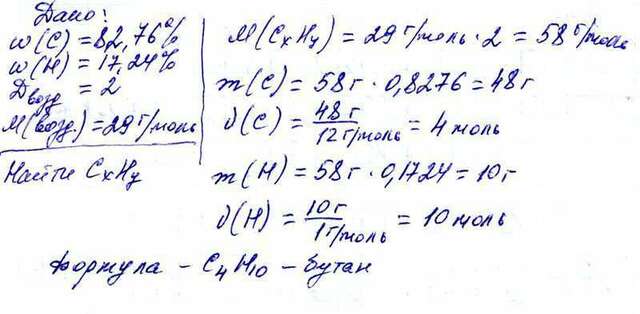 Дано:
w(C) = 82,76%
w(H) = 17,24%
Dвозд = 2
M(возд.) = 29 г/моль
Найти CxHy
M(CxHy) = 29 г/моль · 2 = 58 г/моль
m(C) = 58 г · 0,8276 = 48 г
ν(C) = 48 г / 12 г/моль = 4 моль
m(H) = 58 г · 0,1724 = 10 г
ν(H) = 10 г / 1 г/моль = 10 моль
формула – C4H10 – бутан